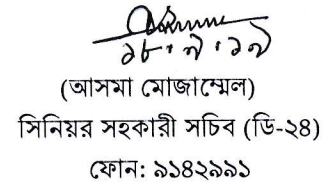 ১৮.৭.১৭
(আসমা মোজাম্মেল)
সিনিয়র সহকারী সচিব (ডি-২৪)
ফোন: ৯১৪২৯৯১